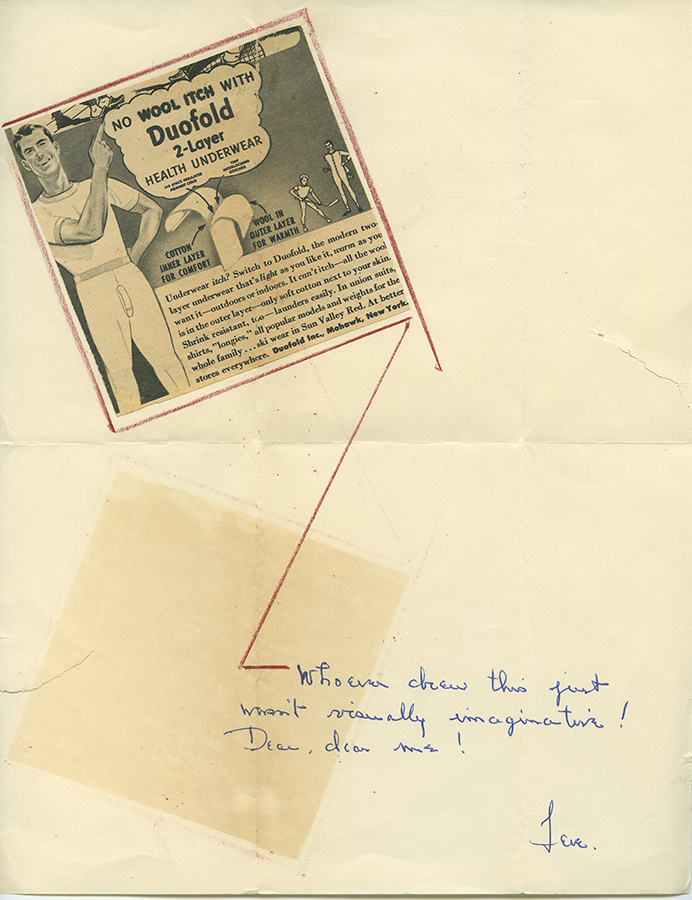 NO WOOL ITCH WITH
Duofold
2-Layer
HEALTH UNDERWEAR
AIR SPACE INSULATES
AGAINST COLD
THIN
INTERLOCKING
STITCHES
COTTON
INNER LAYER
FOR COMFORT
WOOL IN
OUTER LAYER
FOR WARMTH
Underwear itch? Switch to Duofold, the modern two-
layer underwear that's light as you like it, warm as you
want it—outdoors or indoors. It can't itch—all the wool
is in the outer layer—only soft cotton next to your skin.
Shrink resistant, too—launders easily. In union suits,
shirts, "longies," all popular models and weights for the
whole family...ski wear in Sun Valley Red. At better
stores everywhere. Duofold Inc., Mohawk, New York.
Whoever drew this just
wasn't visually imaginative!
Dear, dear me!